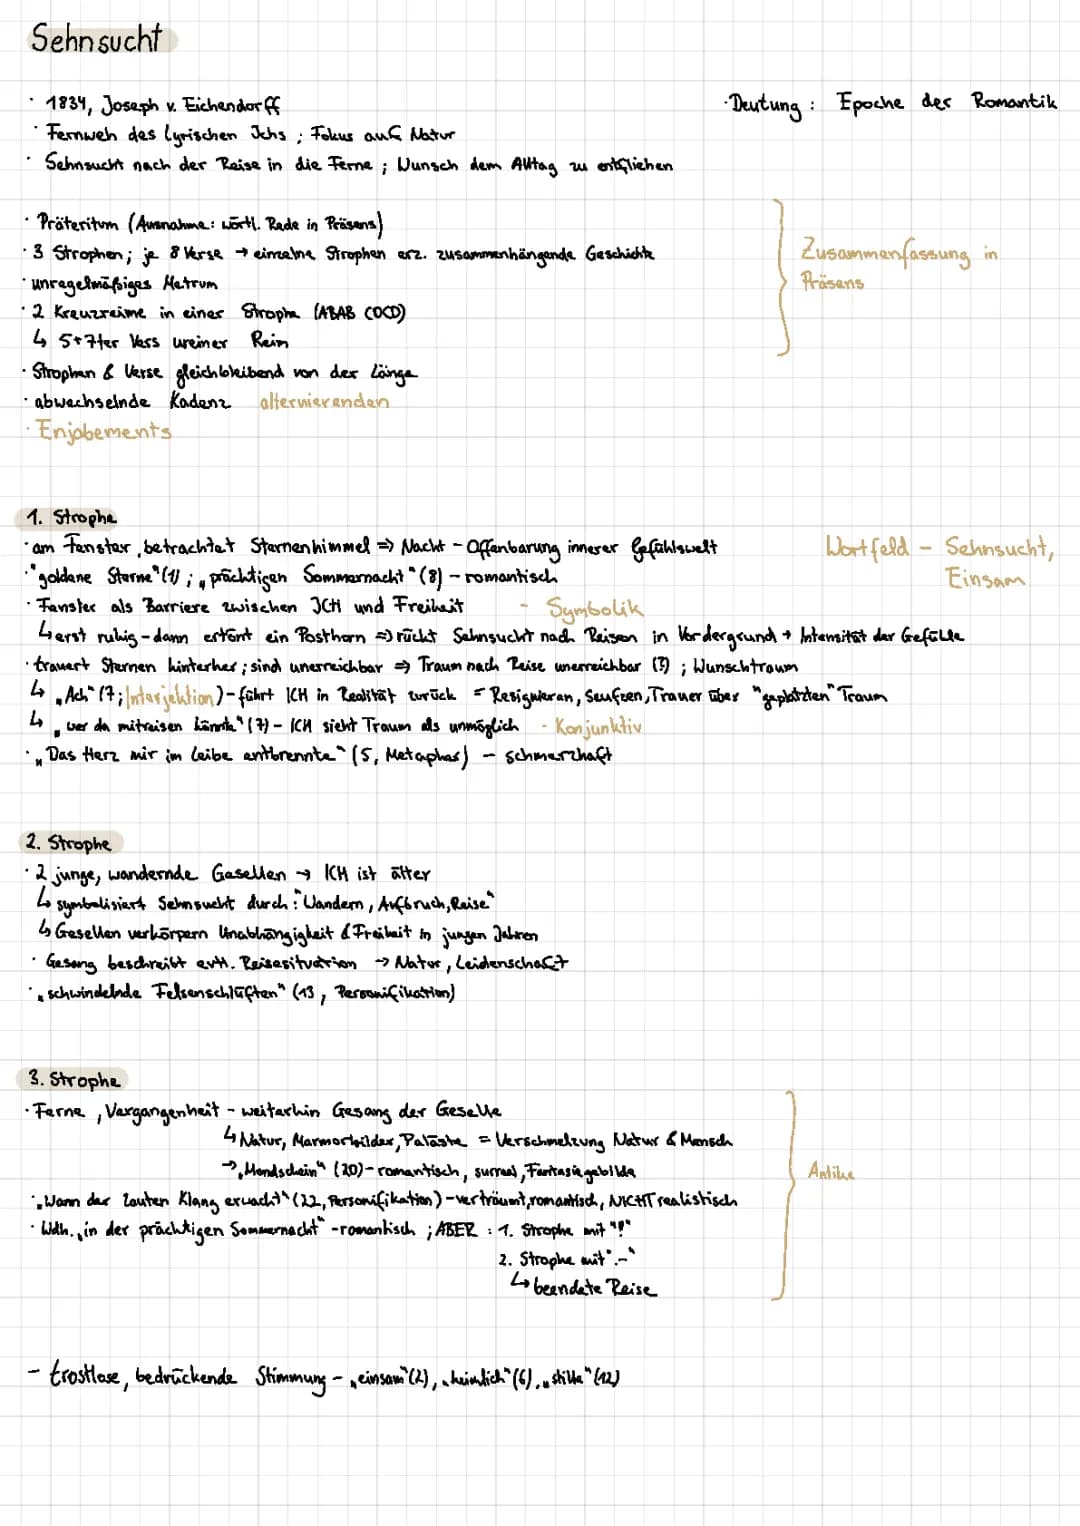 Sehnsucht
· 1834, Joseph v. Eichendorff
· Deutung: Epoche der Romantik
· Fernweh des lyrischen Ichs; Fokus auf Natur
· Sehnsucht nach der Reise in die Ferne; Wunsch dem Alltag zu entfliehen
· Präteritum (Ausnahme: wörtl. Rede in Präsens)
· 3 Strophen; je 8 Verse → einzelne Strophen erz. zusammenhängende Geschichte
Zusammenfassung in
Präsens
· unregelmäßiges Metrum
· 2 Kreuzreime in einer Strophe (ABAB CDCD)
↳ 5+7ter Vers unreiner Reim
· Strophen & Verse gleichbleibend von der Länge
· abwechselnde Kadenz alternierenden
· Enjabements
1. Strophe
· am Fenster, betrachtet Sternenhimmel ⇒ Nacht - Offenbarung innerer Gefühlswelt
Wortfeld - Sehnsucht,
Einsam
· "goldene Sterne" (1); „prächtigen Sommernacht" (8) - romantisch
· Fenster als Barriere zwischen ICH und Freiheit - Symbolik
↳ erst ruhig - dann ertönt ein Posthorn ⇒ rückt Sehnsucht nach Reisen in Vordergrund → Intensität der Gefühle
· trauert Sternen hinterher; sind unerreichbar ⇒ Traum nach Reise unerreichbar (?); Wunschtraum
↳ „Ach" (7; Interjektion) - führt ICH in Realität zurück = Resignieren, Seufzen, Trauer über "geplatzten" Traum
↳ „wer da mitreisen könnte" (7) - ICH sieht Traum als unmöglich - Konjunktiv
· „Das Herz mir im Leibe entbrennte" (5, Metapher) - schmerzhaft
2. Strophe
· 2 junge, wandernde Gesellen → ICH ist älter
↳ symbolisiert Sehnsucht durch: "Wandern, Aufbruch, Reise"
↳ Gesellen verkörpern Unabhängigkeit & Freiheit in jungen Jahren
· Gesang beschreibt evtl. Reisesituation → Natur, Leidenschaft
· „schwindelnde Felsenschlüften" (13, Personifikation)
3. Strophe
· Ferne, Vergangenheit - weiterhin Gesang der Geselle
↳ Natur, Marmorbilder, Paläste = Verschmelzung Natur & Mensch
→ „Mondschein" (20) - romantisch, surreal, Fantasiegebilde
Antike
· „Wann der Lauten Klang erwacht" (22, Personifikation) - verträumt, romantisch, NICHT realistisch
· Wdh. „in der prächtigen Sommernacht" - romantisch; ABER: 1. Strophe mit "!"
2. Strophe mit ".-"
↳ beendete Reise
- trostlose, bedrückende Stimmung - „einsam" (2), „heimlich" (6), „stille" (12)